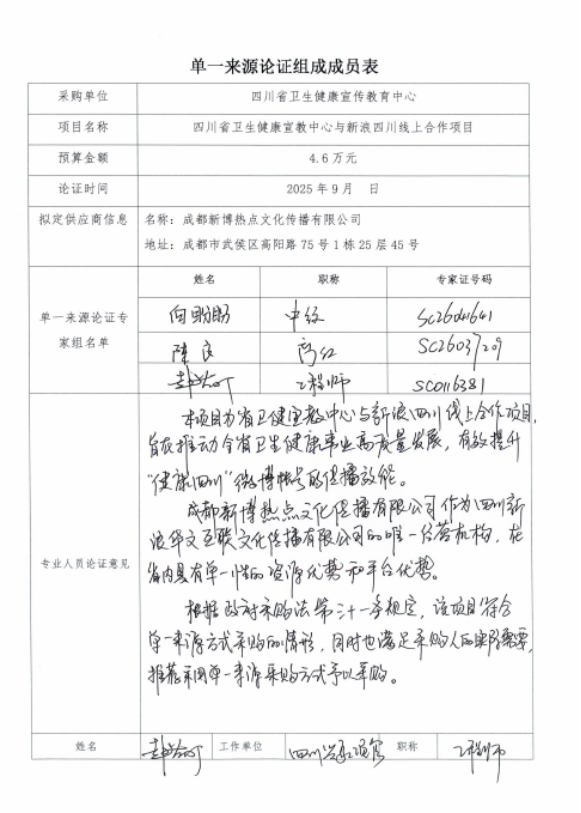 单一来源论证组成成员表
采购单位 四川省卫生健康宣传教育中心
项目名称 四川省卫生健康宣教中心与新浪四川线上合作项目
预算金额 4.6 万元
论证时间 2025 年 9 月 日
拟定供应商信息 名称：成都新博热点文化传播有限公司
地址：成都市武侯区高阳路 75 号 1 栋 25 层 45 号
单一来源论证专家组名单
姓名 职称 专家证号码
向盼盼 中级 SC26041641
陈 高级 SC26037209
工程师 SC0116381
专业人员论证意见
本项目为省卫健宣教中心与新浪四川线上合作项目，
旨在推动全省卫生健康事业高质量发展，有效提升
“健康四川”微博帐号的传播效能。
成都新博热点文化传播有限公司作为四川新
浪华文互联文化传播有限公司的唯一经营机构，在
省内具有单一性的资源优势和平台优势。
根据政府采购法第三十一条规定，该项目符合
单一来源方式采购的情形，同时也满足采购人的实际需要，
推荐采用单一来源采购方式予以采购。
姓名 工作单位 四川 职称 工程师